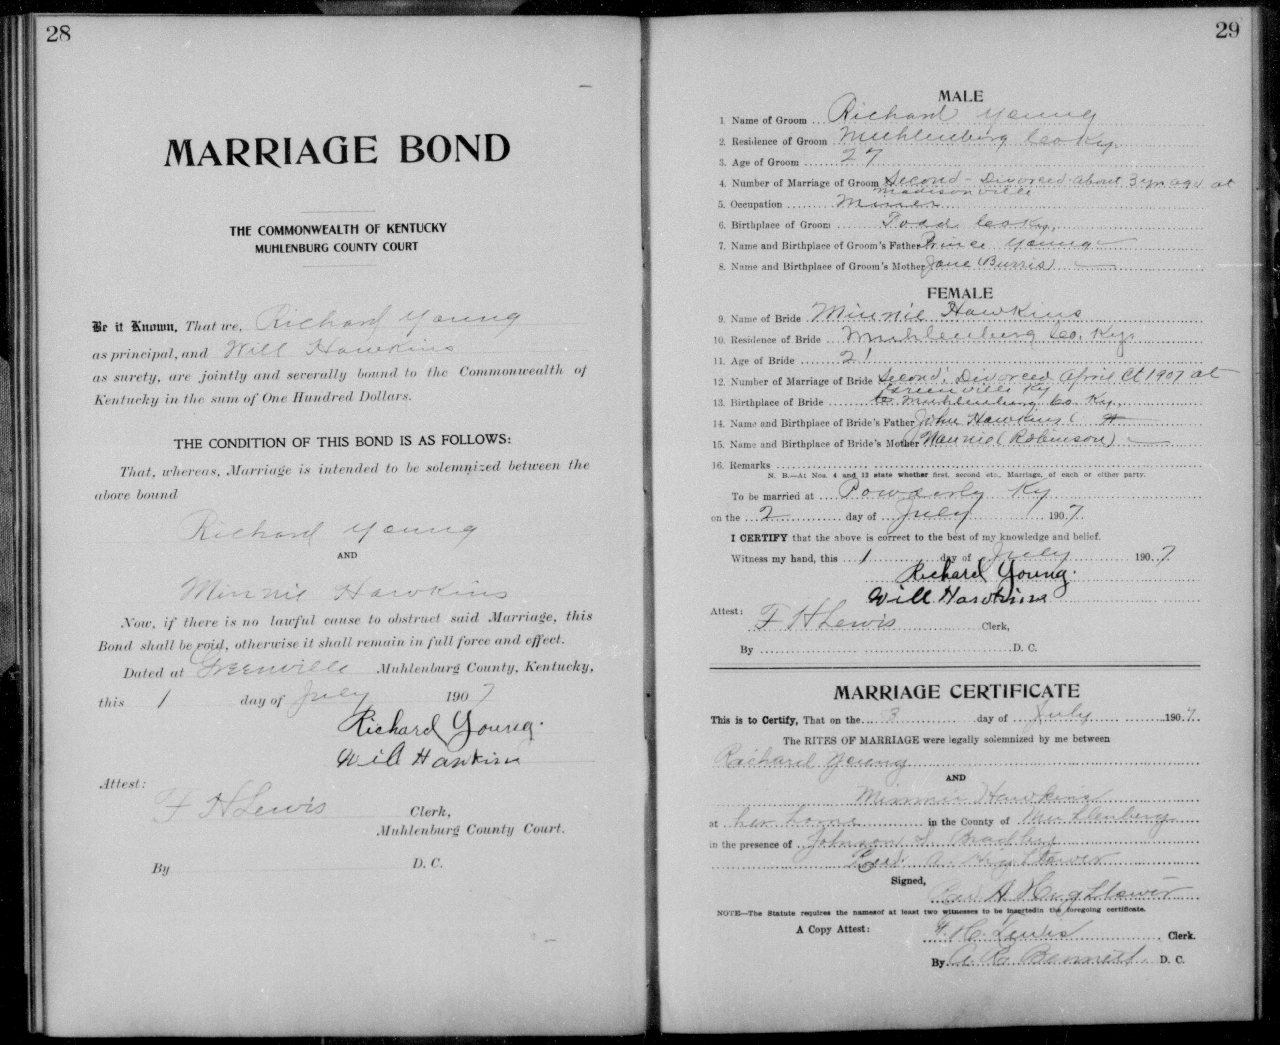 28
MARRIAGE BOND
THE COMMONWEALTH OF KENTUCKY
MUHLENBURG COUNTY COURT
Be it Known, That we, Richard Young
as principal, and Will Hawkins
as surety, are jointly and severally bound to the Commonwealth of
Kentucky in the sum of One Hundred Dollars.
THE CONDITION OF THIS BOND IS AS FOLLOWS:
That, whereas, Marriage is intended to be solemnized between the
above bound
Richard Young
AND
Minnie Hawkins
Now, if there is no lawful cause to obstruct said Marriage, this
Bond shall be void, otherwise it shall remain in full force and effect.
Dated at Greenville Muhlenburg County, Kentucky,
this 1 day of July 1907
Richard Young.
Will Hawkins
Attest:
F H Lewis Clerk,
Muhlenburg County Court.
By D. C.
29
MALE
1. Name of Groom Richard Young
2. Residence of Groom Muhlenburg Co Ky.
3. Age of Groom 27
4. Number of Marriage of Groom Second - Divorced about 3 yrs ago at
Madisonville
5. Occupation Miner
6. Birthplace of Groom Todd Co Ky.
7. Name and Birthplace of Groom's Father Prince Young
8. Name and Birthplace of Groom's Mother Jane (Burris)
FEMALE
9. Name of Bride Minnie Hawkins
10. Residence of Bride Muhlenburg Co. Ky.
11. Age of Bride 21
12. Number of Marriage of Bride Second. Divorced April Ct 1907 at
Greenville Ky
13. Birthplace of Bride Muhlenburg Co Ky.
14. Name and Birthplace of Bride's Father John Hawkins (
15. Name and Birthplace of Bride's Mother Nannie (Robinson)
16. Remarks
N. B.—At Nos. 4 and 12 state whether first, second etc., Marriage, of each or either party.
To be married at Powderly Ky
on the 2 day of July 1907.
I CERTIFY that the above is correct to the best of my knowledge and belief.
Witness my hand, this 1 day of July 1907
Richard Young.
Will Hawkins
Attest: F H Lewis Clerk,
By D. C.
MARRIAGE CERTIFICATE
This is to Certify, That on the 3 day of July 1907.
The RITES OF MARRIAGE were legally solemnized by me between
Richard Young
AND
Minnie Hawkins
at her home in the County of Muhlenberg
in the presence of Johnson L Bradley
A. Hightower
Signed,
A Hughtower
NOTE—The Statute requires the names of at least two witnesses to be inserted in the foregoing certificate.
A Copy Attest: F. H. Lewis Clerk.
By A. R. Bennett D. C.